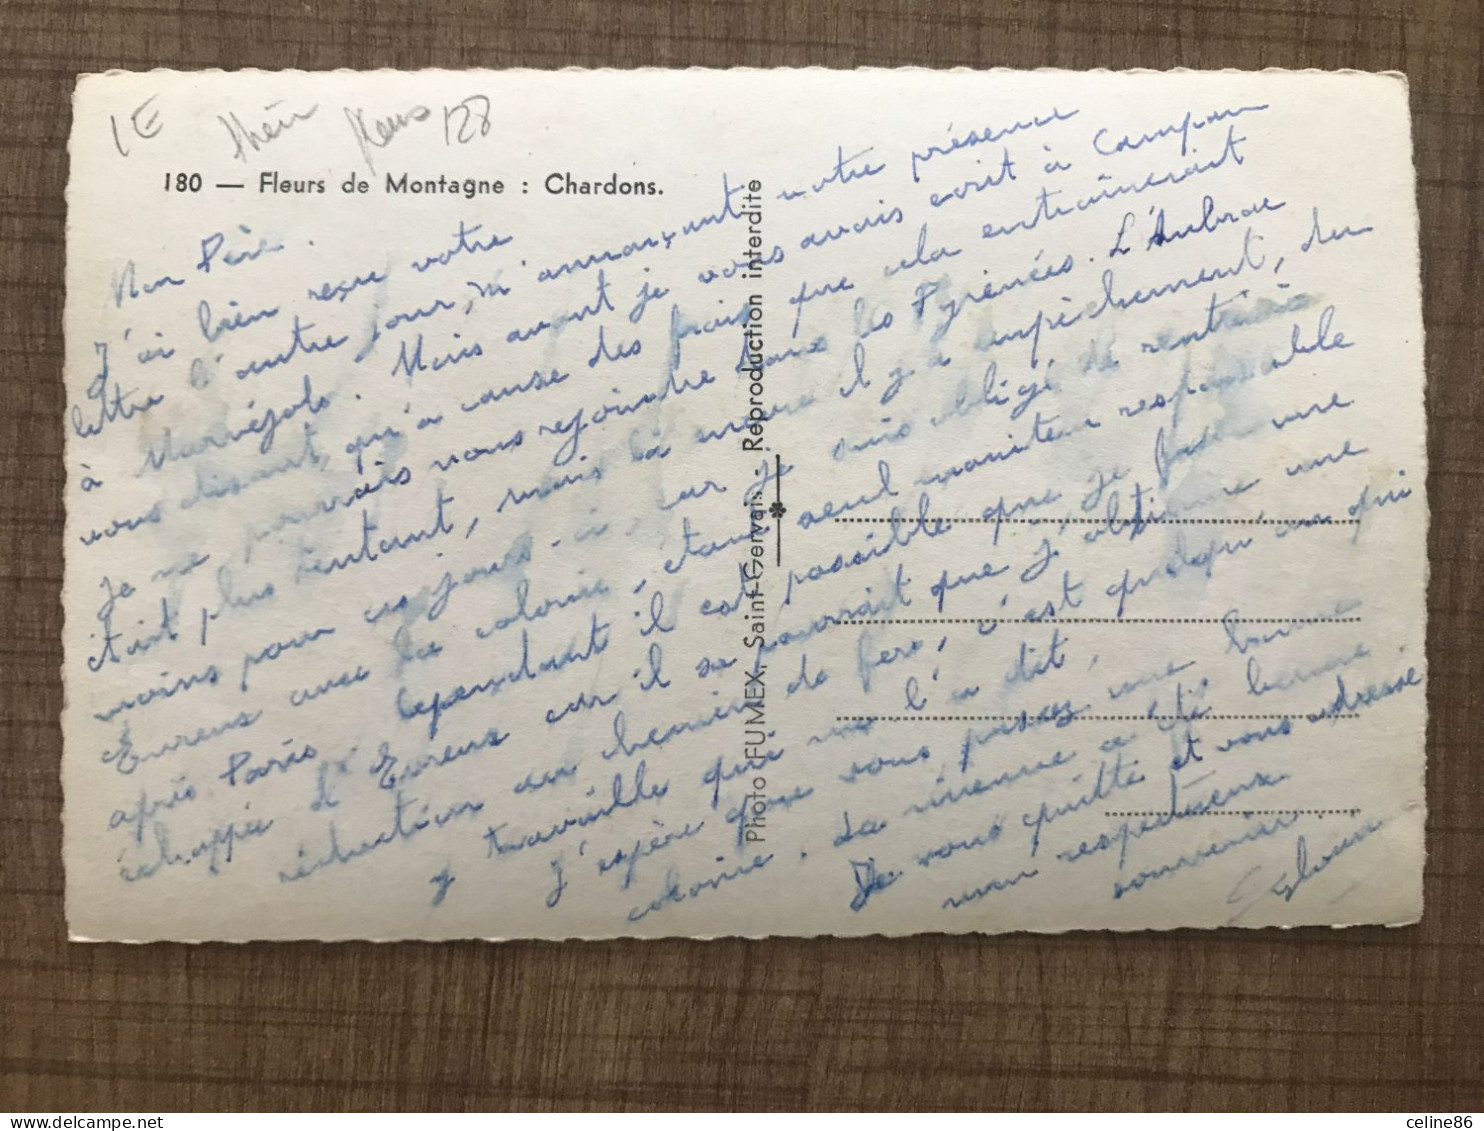 1 E
Fleurs 128
180 — Fleurs de Montagne : Chardons.
Mon Père.
J'ai bien reçu votre
lettre l'autre jour, m'annonçant votre présence
à Marvejols. Mais avant je vous avais écrit à Campan
vous disant, qu'à cause des frais que cela entraînerait
Je ne pourrais vous rejoindre dans les Pyrénées. L'Aubrac
était plus tentant, mais là encore il y a empêchement, du
moins pour ces jours-ci, car je suis obligé de rentrer à
Evreux avec la colonie, étant seul moniteur responsable
après Paris. Cependant il est possible que je fasse une
échappée d'Evreux car il se pourrait que j'obtienne une
réduction au chemin de fer, c'est quelqu'un qui
y travaille qui me l'a dit.
J'espère que vous passez une bonne
colonie. La mienne a été bonne
Je vous quitte et vous adresse
mon respectueux
souvenir.
Photo FUMEX, Saint-Gervais - Reproduction interdite
celine86